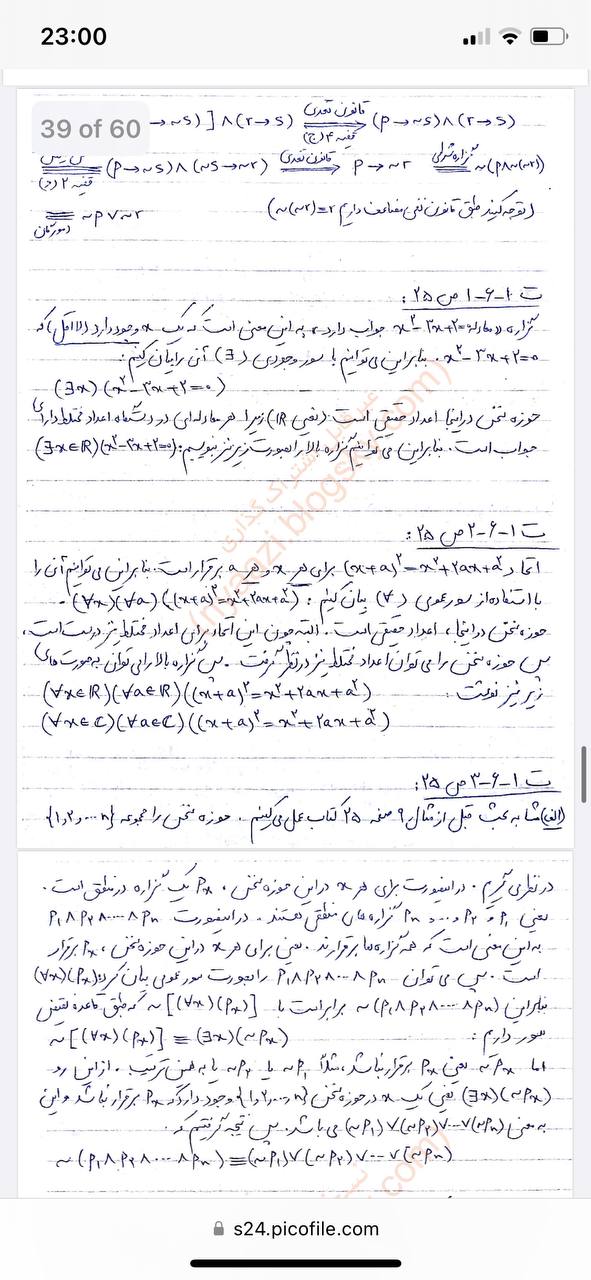 23:00
39 of 60
→~s)]∧(r→s) قانون تعدی (p→~s)∧(r→s)
(p→~s)∧(~s→~r) قانون تعدی p→~r گزاره شرطی ~(p∧~(~r))
≡ ~p∨~r (توجه کنید طبق قانون نفی مضاعف داریم ~(~r)≡r)
دمورگان
ت ۱-۶-۱ ص ۲۵:
گزاره «معادله x²-۳x+۲=۰ جواب دارد» به این معنی است که یک x وجود دارد (لااقل) که
x²-۳x+۲=۰. بنابراین می‌توانیم با سور وجودی (∃) آن را بیان کنیم:
(∃x)(x²-۳x+۲=۰)
حوزه سخن در اینجا اعداد حقیقی است (یعنی ℝ) زیرا هر معادله‌ای در دستگاه اعداد مختلط دارای
جواب است. بنابراین می‌توانیم گزاره بالا را بصورت زیر نیز بنویسیم: (∃x∈ℝ)(x²-۳x+۲=۰)
ت ۱-۶-۲ ص ۲۵:
اتحاد (x+a)²=x²+۲ax+a² برای هر x و هر a برقرار است. بنابراین می‌توانیم آن را
با استفاده از سور عمومی (∀) بیان کنیم: (∀x)(∀a)((x+a)²=x²+۲ax+a²).
حوزه سخن در اینجا، اعداد حقیقی است. البته چون این اتحاد برای اعداد مختلط نیز درست است،
پس حوزه سخن را می‌توان اعداد مختلط نیز در نظر گرفت. پس گزاره بالا را می‌توان به صورت‌های
زیر نیز نوشت: (∀x∈ℝ)(∀a∈ℝ)((x+a)²=x²+۲ax+a²)
(∀x∈C)(∀a∈C)((x+a)²=x²+۲ax+a²)
ت ۱-۶-۳ ص ۲۵:
(الف) مشابه بحث قبل از مثال ۹ صفحه ۲۵ کتاب عمل می‌کنیم. حوزه سخن را مجموعه {۱,۲,...,n}
در نظر می‌گیریم. در اینصورت برای هر x در این حوزه سخن، Px یک گزاره در منطق است.
یعنی P₁ و P₂ و ... و Pn گزاره‌های منطقی هستند. در اینصورت P₁∧P₂∧...∧Pn
به این معنی است که همه گزاره‌ها برقرارند. یعنی برای هر x در این حوزه سخن، Px برقرار
است. پس می‌توان P₁∧P₂∧...∧Pn را بصورت سور عمومی بیان کرد: (∀x)(Px)
بنابراین ~(P₁∧P₂∧...∧Pn) برابر است با ~[(∀x)(Px)] که طبق قاعده نقیض
سور داریم: ~[(∀x)(Px)] ≡ (∃x)(~Px)
اما ~Px یعنی Px برقرار نباشد، مثلاً ~P₁ یا ~P₂ یا به همین ترتیب. از این رو
(∃x)(~Px) یعنی یک x در حوزه سخن {۱,۲,...,n} وجود دارد که Px برقرار نباشد و این
به معنی (~P₁)∨(~P₂)∨...∨(~Pn) می‌باشد. پس نتیجه گرفتیم که:
~(P₁∧P₂∧...∧Pn)≡(~P₁)∨(~P₂)∨...∨(~Pn)
s24.picofile.com